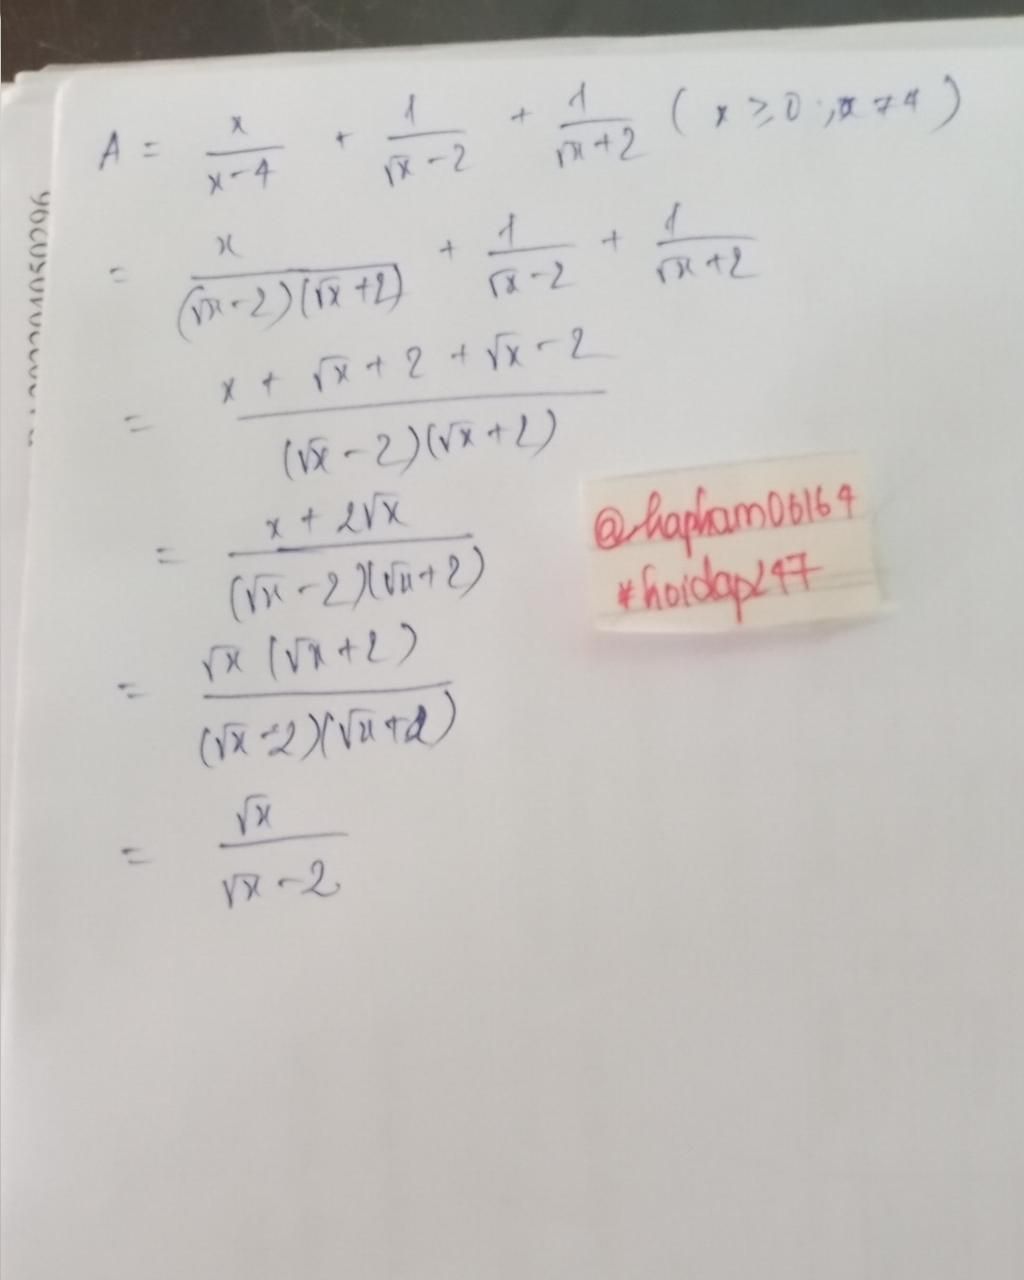 A = x/(x-4) + 1/(√x-2) + 1/(√x+2) ( x ≥ 0 ; x ≠ 4 )
= x/((√x-2)(√x+2)) + 1/(√x-2) + 1/(√x+2)
= (x + √x + 2 + √x - 2)/((√x - 2)(√x + 2))
= (x + 2√x)/((√x - 2)(√x + 2))
= √x (√x + 2)/((√x - 2)(√x + 2))
= √x/(√x - 2)
@hapham06164
#hoidap247